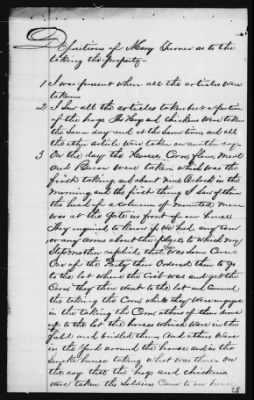 Depositions of Mary Turner as to the
taking the property-
1 I was present when all the articles were
taken
2 I saw all the articles taken but a portion
of the hogs The Hogs and chickens were taken
the same day and at the same time and all
the other article were taken on another day-
3 On the day the Horses, Corn, flour, Meal
and Bacon were taken, which was the
first taking and about nine o'clock in the
Morning and the first thing I saw of them
the head of a column of mounted men
was at the gate in front of our house
They inquired to know if we had any corn
or any arms about the place to which my
Stepmother replied that was some Corn
One of the Party then Ordered them to go
to the lot where the Crib was and get the
Corn they then went to the lot and Commenced
the taking the Corn while they were engaged
in the taking the Corn others of them drove
up to the lot the horses which were in the
field and bridled them And others were
in the Yard around the house and in the
smoke house taking what was there on
the day that the hogs and chickens
were taken the Soldiers Came to our house